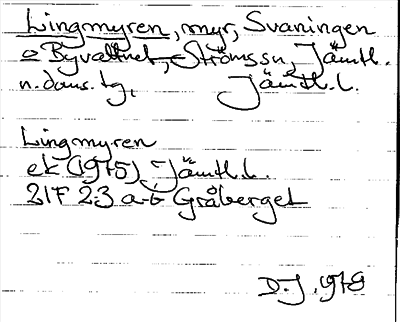 Lingmyren, myr, Svaningen
o Byvattnet, Ströms sn, Jämtl.
n. doms. tg, Jämtl. l.
Lingmyren
ek (1975) Jämtl. l.
21F 2-3 a-b Gråberget
D.J. 1978